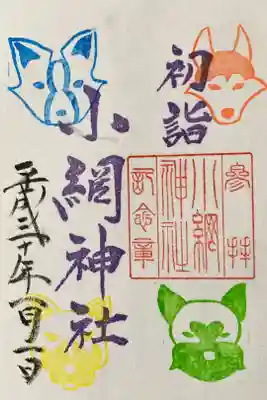 初詣
小網神社
参拝
小網
神社
記念章
平成三十年一月一日